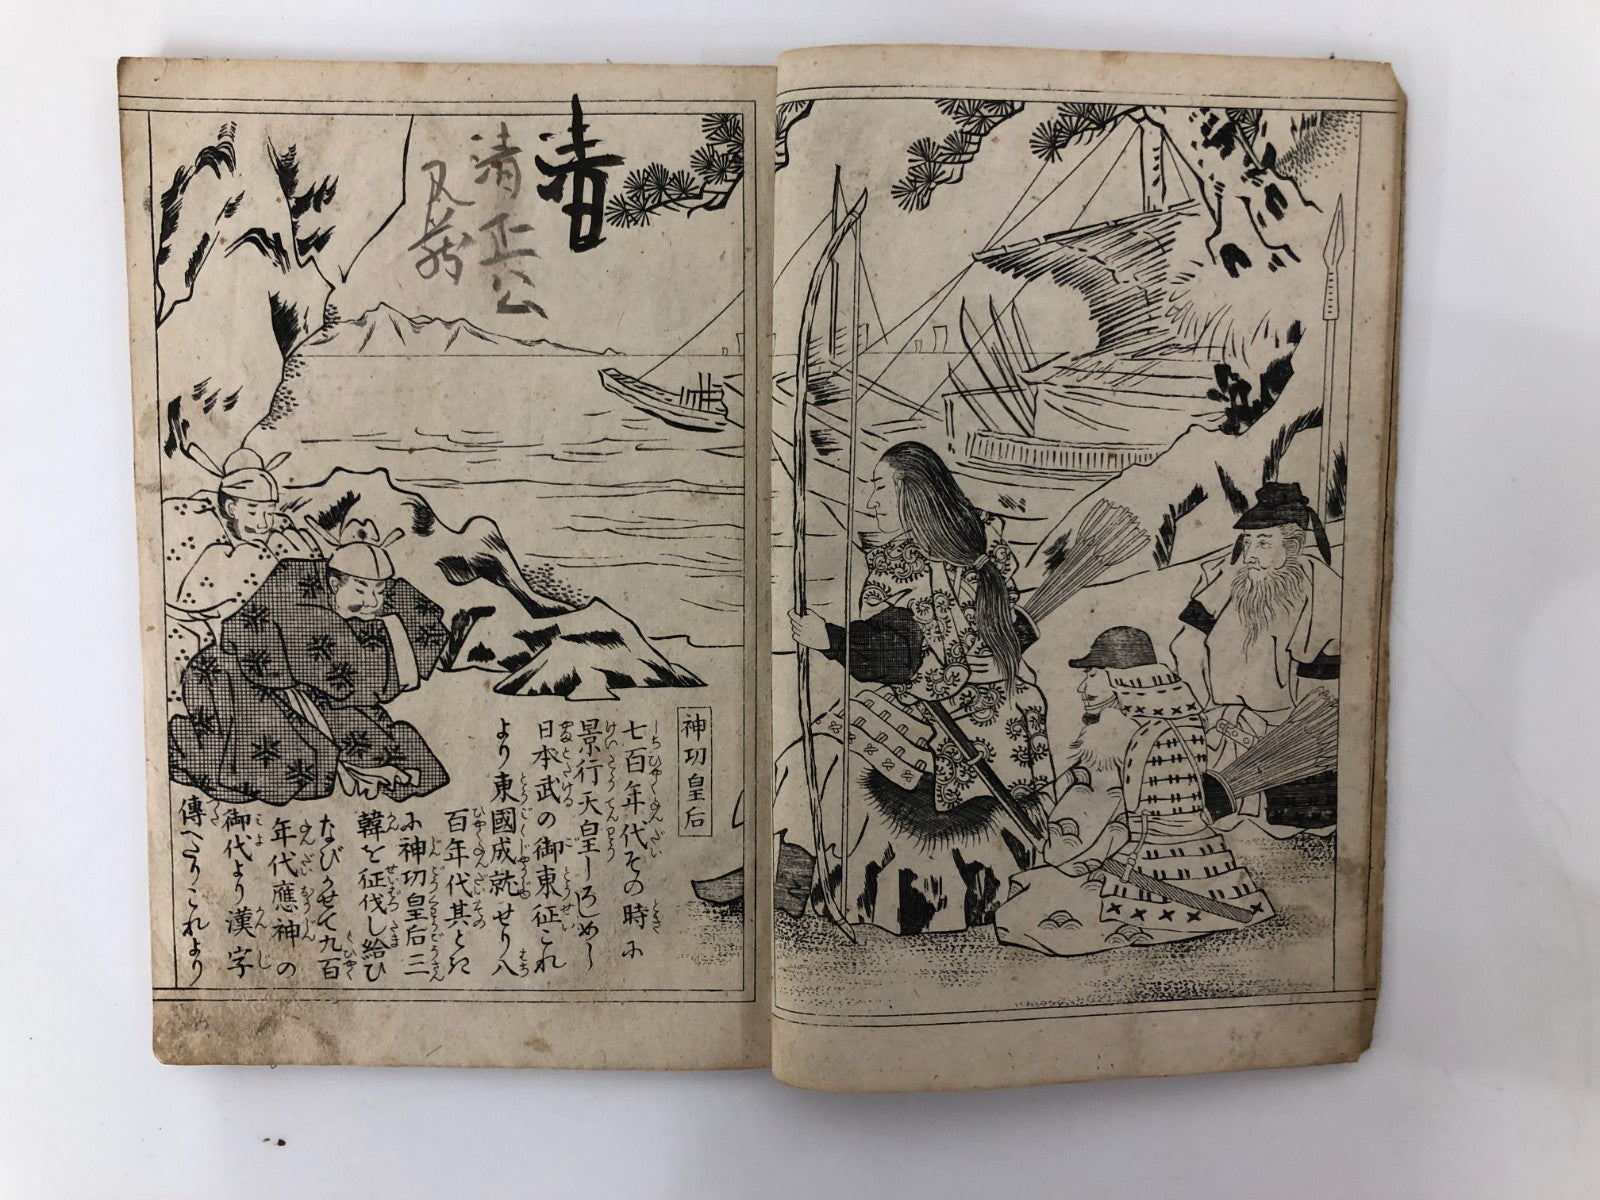 清
清正公
神功皇后
七百年代その時に
景行天皇しろしめし
日本武の御東征これ
より東國成就せり八
百年代其とき
に神功皇后三
韓を征伐し給ひ
なびかせて九百
年代應神の
御代より漢字
傳へたりこれより